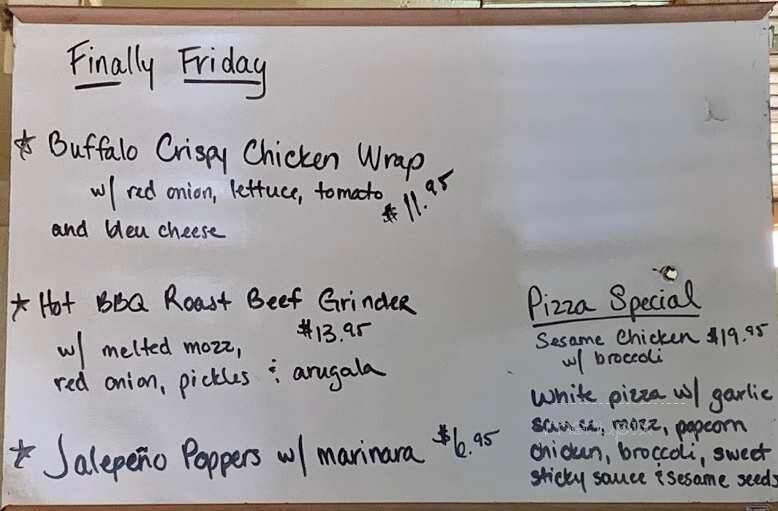 Finally Friday
☆ Buffalo Crispy Chicken Wrap
w/ red onion, lettuce, tomato $11.95
and bleu cheese
☆ Hot BBQ Roast Beef Grinder
$13.95
w/ melted mozz,
red onion, pickles & arugala
☆ Jalepeño Poppers w/ marinara $6.95
Pizza Special
Sesame Chicken $19.95
w/ broccoli
White pizza w/ garlic
sauce, mozz, popcorn
chicken, broccoli, sweet
sticky sauce & sesame seeds